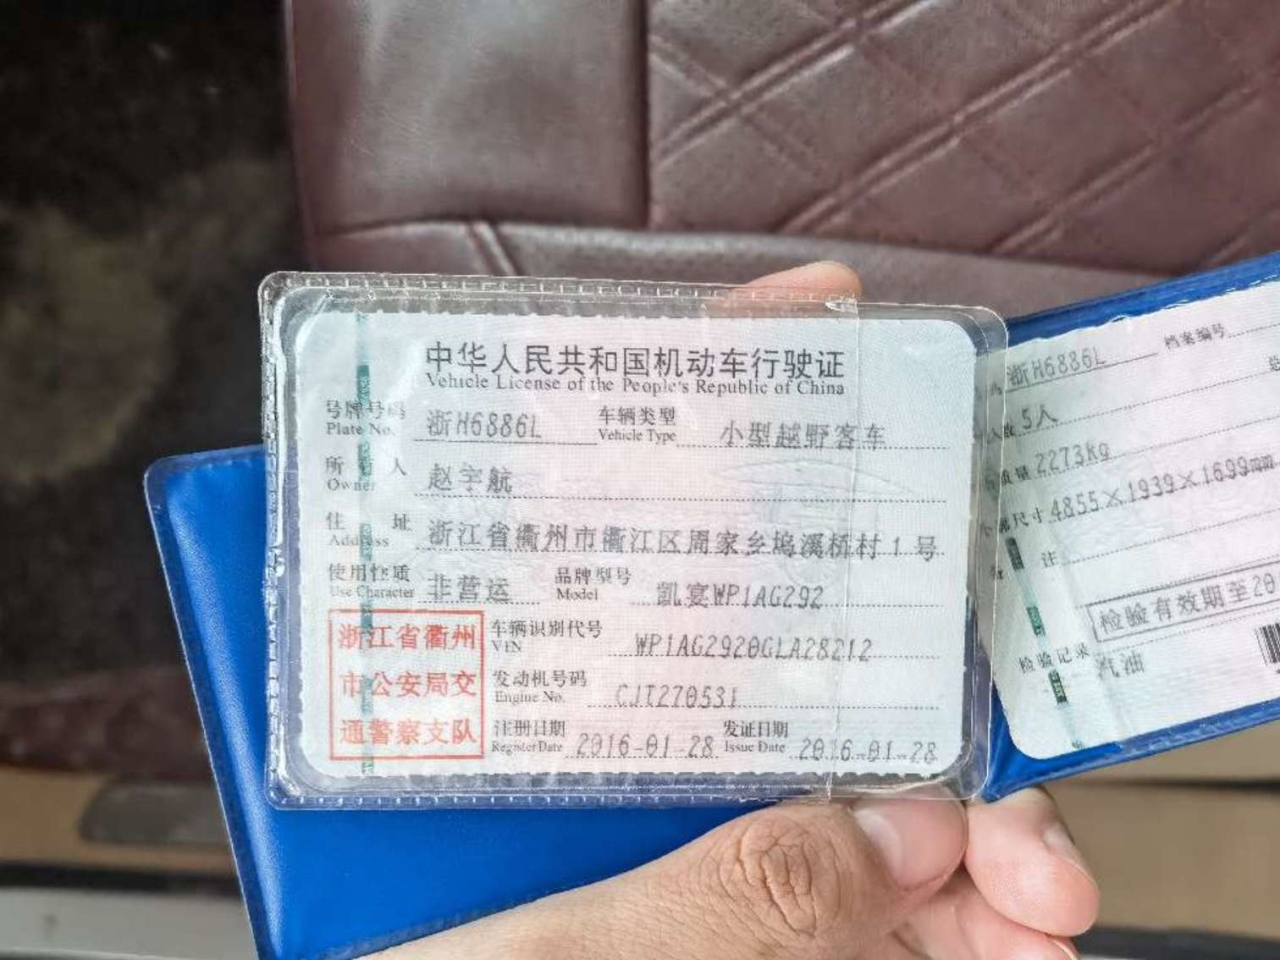 中华人民共和国机动车行驶证
Vehicle License of the People's Republic of China
号牌号码 浙H6886L 车辆类型 小型越野客车
Plate No. Vehicle Type
所有人 赵宇航
Owner
住址 浙江省衢州市衢江区周家乡坞溪桥村1号
Address
使用性质 非营运 品牌型号 凯宴WP1AG292
Use Character Model
浙江省衢州
市公安局交
通警察支队
车辆识别代号 WP1AG2920GLA28212
VIN
发动机号码 CJT270531
Engine No.
注册日期 2016-01-28 发证日期 2016-01-28
Register Date Issue Date
浙H6886L 档案编号
5人
质量 2273kg
尺寸 4855×1939×1699mm
注
检验有效期至20
检验记录
汽油